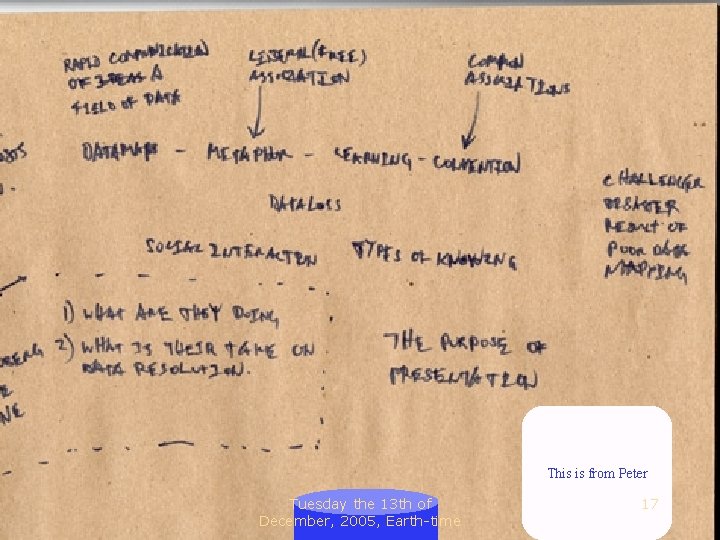 RAPID COMMUNICATION
OF IDEAS A
FIELD OF DATA
LITERAL (FREE)
ASSOCIATION
COMMON
ASSOCIATIONS
DATAMAP - METAPHOR - LEARNING - CONVENTION
DATALOSS
CHALLENGER
DISASTER
RESULT OF
POOR DATA
MAPPING
SOCIAL INTERACTION
TYPES OF KNOWING
1) WHAT ARE THEY DOING
2) WHAT IS THEIR TAKE ON
DATA RESOLUTION.
THE PURPOSE OF
PRESENTATION
This is from Peter
Tuesday the 13th of
December, 2005, Earth-time
17